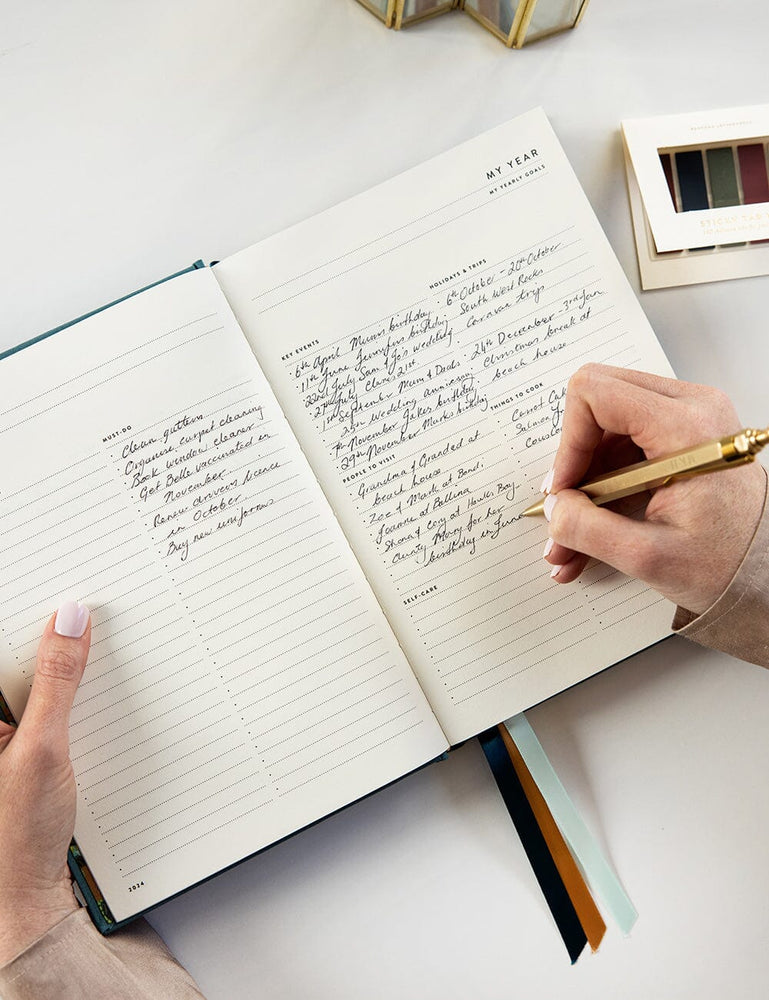 MUST-DO
Clean gutters
Organise carpet cleaning
Book window cleaner
Get Belle vaccinated in
November
Renew drivers licence
in October
Buy new uniforms
2024
MY YEAR
MY YEARLY GOALS
KEY EVENTS
6th April Mums birthday
11th June Jennifers birthday
22nd July Sam & Jo's wedding
27th July Claires 21st
1st September Mum & Dads
25th wedding anniversary
7th November Jakes birthday
29th November Marks birthday
HOLIDAYS & TRIPS
6th October - 20th October
South West Rocks
Caravan trip
24th December - 3rd Jan
Christmas break at
beach house
PEOPLE TO VISIT
Grandma & Grandad at
beach house
Zoe & Mark at Bondi
Joanne at Ballina
Shona & Cory at Hawks Bay
Aunty Mary for her
birthday in June
THINGS TO COOK
Carrot Cake
Salmon
SELF-CARE
STICKY TAB